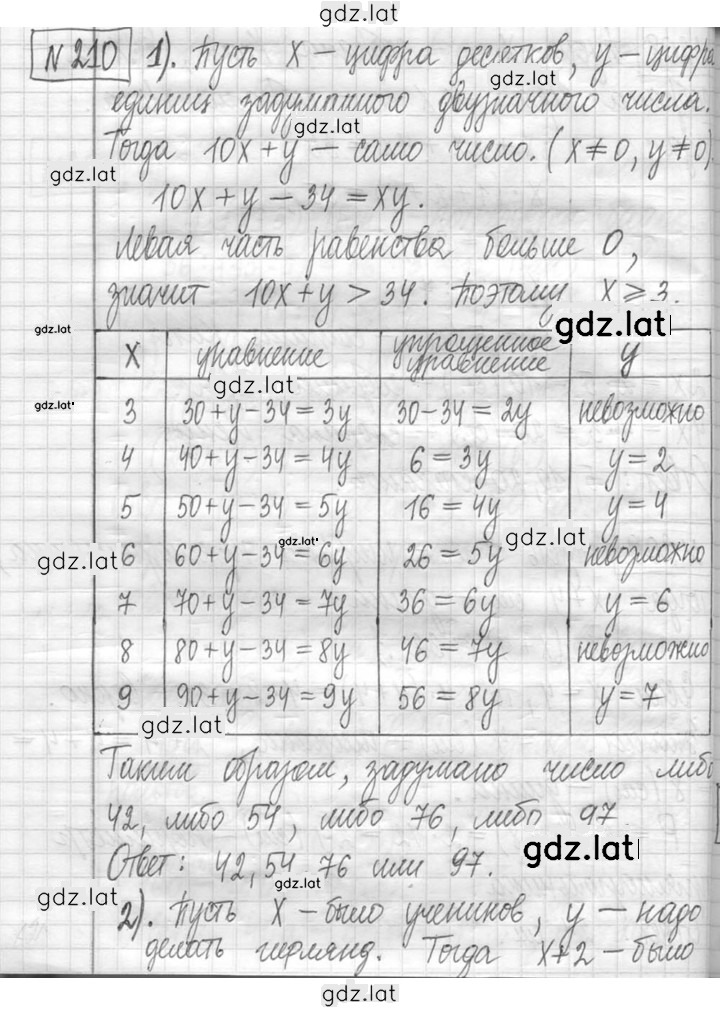 gdz.lat
№ 210 1). Пусть x – цифра десятков, y – цифра
gdz.lat
единиц задуманного двузначного числа.
gdz.lat
Тогда 10x + y – само число. (x ≠ 0, y ≠ 0)
gdz.lat
10x + y – 34 = xy.
Левая часть равенства больше 0,
значит 10x + y > 34. Поэтому x ⩾ 3.
gdz.lat gdz.lat
x уравнение упрощенное уравнение y
gdz.lat
gdz.lat
3 30 + y – 34 = 3y 30 – 34 = 2y невозможно
4 40 + y – 34 = 4y 6 = 3y y = 2
5 50 + y – 34 = 5y 16 = 4y y = 4
gdz.lat gdz.lat
gdz.lat 6 60 + y – 34 = 6y 26 = 5y невозможно
7 70 + y – 34 = 7y 36 = 6y y = 6
8 80 + y – 34 = 8y 46 = 7y невозможно
9 90 + y – 34 = 9y 56 = 8y y = 7
gdz.lat
Таким образом, задумано число либо
42, либо 54, либо 76, либо 97.
gdz.lat
Ответ: 42, 54 76 или 97.
gdz.lat
gdz.lat
2). Пусть x – было учеников, y – надо
gdz.lat
делать гирлянд. Тогда x + 2 – было
gdz.lat